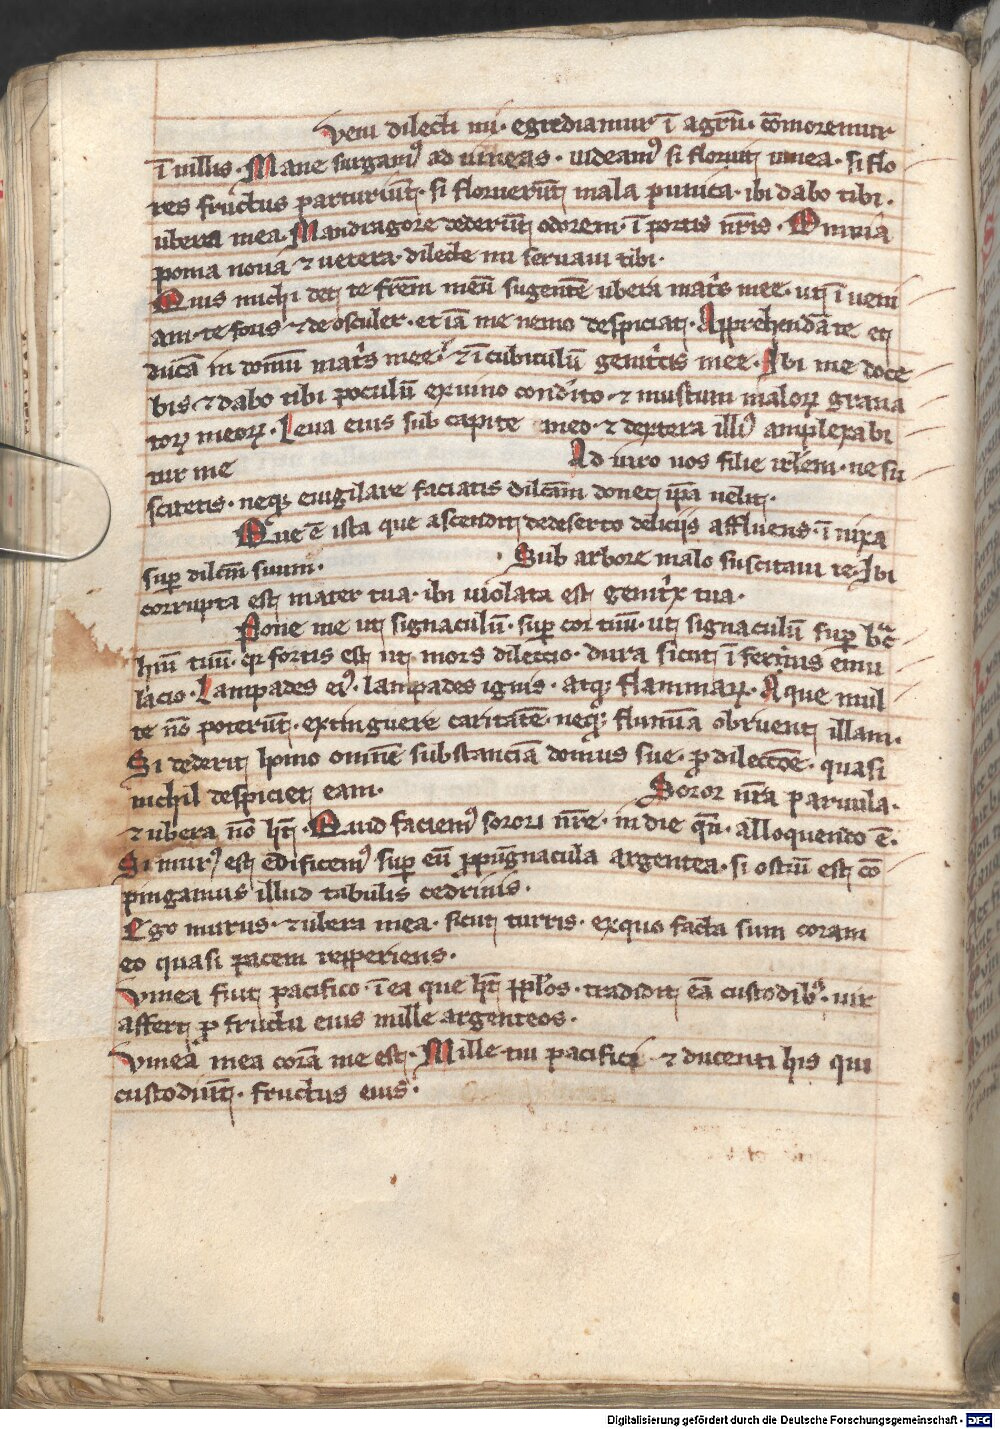 Veni dilecti mi · egrediamur ī agrū · cōmoremur
ī uillis · Mane surgamꝰ ad uineas · uideamꝰ si floruit uinea · si flo
res fructus parturiūt · si floruerūt mala punica · ibi dabo tibi ·
ubera mea · Mandragore dederūt odorem · ī portis nr̄is · Omnia
poma noua ⁊ uetera · dilecte mi seruaui tibi ·
Quis michi det te frēm meū sugentē ubera mat̄s mee · ut īueni
am · te foris ⁊ deosculer · et iā me nemo despiciat · Apprehendā te et
ducā in domū mat̄s mee · ⁊ ī cubiculū genit̄cis mee · Ibi me doce
bis · ⁊ dabo tibi poculū ex uino condito · ⁊ mustum maloꝝ grana
toꝝ meoꝝ · Leua eius sub capite meo · ⁊ dextera illiꝰ amplexabi
tur me Adiuro uos filie irl̄em · ne su
scitetis · neqꝫ euigilare faciatis dilc̄am donec ip̄a uelit ·
Que ē ista que ascendit de deserto deliciis affluens · īnixa
suꝑ dilc̄m suum · Sub arbore malo suscitaui te · Ibi
corrupta est mater tua · ibi uiolata est genit̄x tua ·
Pone me ut signaculū · suꝑ cor tuū · ut signaculū suꝑ bꝛ̄c
hiū tuū · qꝛ fortis est ut mors dileccio · dura sicut īfernus emu
lacio · Lampades eiꝰ · lampades ignis · atqꝫ flammaꝝ · Aque mul
te nō poterūt · extinguere caritatē · neqꝫ flumīa obruent illam ·
Si dederit homo omnē substanciā domus sue · ꝓ dileccōe · quasi
nichil despiciet eam · Soror nr̄a paruula ·
⁊ ubera nō hꝫt · Quid faciemꝰ sorori nr̄e · in die qn̄ · alloquendo ē ·
Si murꝰ est edificemꝰ suꝑ eū ꝓpugnacula argentea · si ostiū est cō
pingamus illud tabulis cedrinis ·
Ego murus · ⁊ ubera mea · sicut turris · ex quo facta sum coram
eo quasi pacem repperiens ·
Vinea fuit pacifico · ī ea que hꝫt pp̄l̄os · tradidit eā custodibꝰ · uir
affert ꝓ fructu eius mille argenteos ·
Vinea mea corā me est · Mille tui pacifici ⁊ ducenti his qui
custodiūt · fructus eius ·
Digitalisierung gefördert durch die Deutsche Forschungsgemeinschaft - DFG